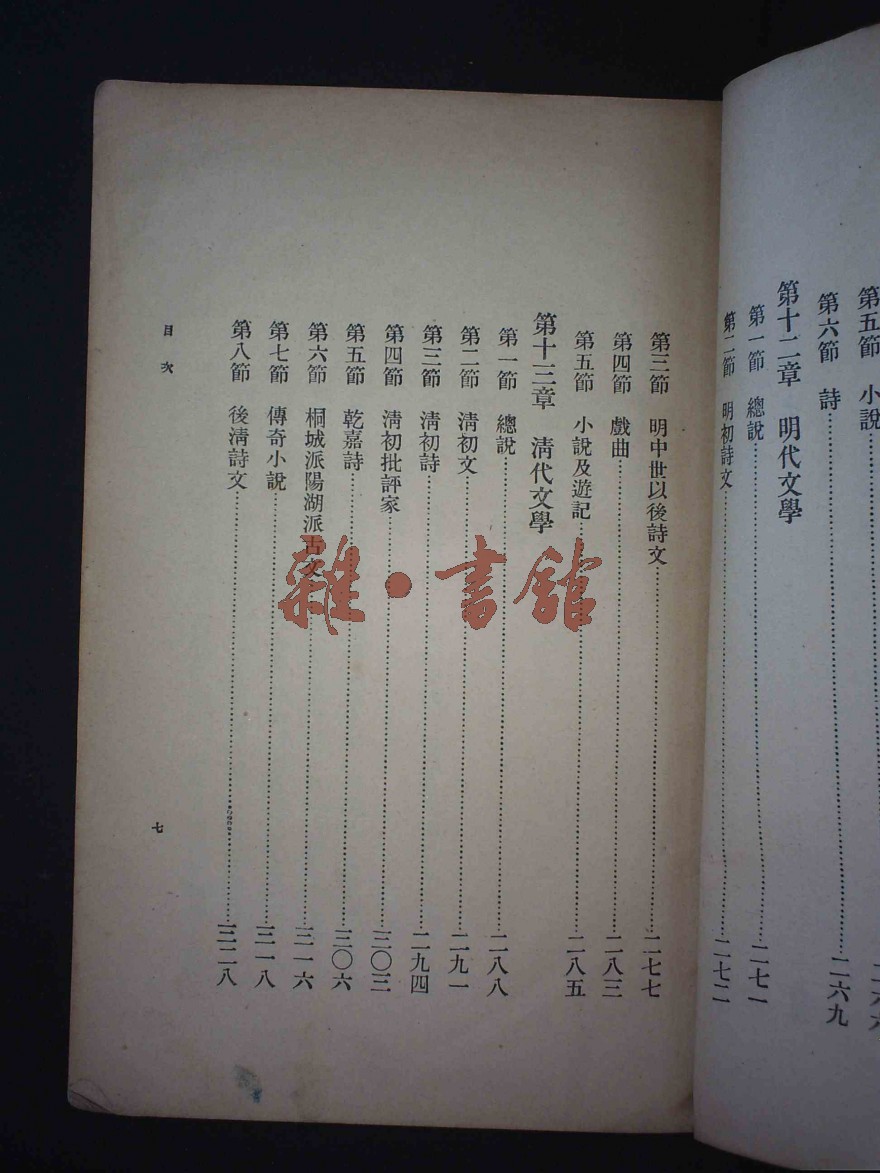 第五節　小說
第六節　詩……二六九
第十二章　明代文學
第一節　總說……二七一
第二節　明初詩文……二七二
第三節　明中世以後詩文……二七七
第四節　戲曲……二八三
第五節　小說及遊記……二八五
第十三章　淸代文學
第一節　總說……二八八
第二節　淸初文……二九一
第三節　淸初詩……二九四
第四節　淸初批評家……三〇三
第五節　乾嘉詩……三〇六
第六節　桐城派陽湖派古文……三一六
第七節　傳奇小說……三一八
第八節　後淸詩文……三二八
目次
七
雜·書館